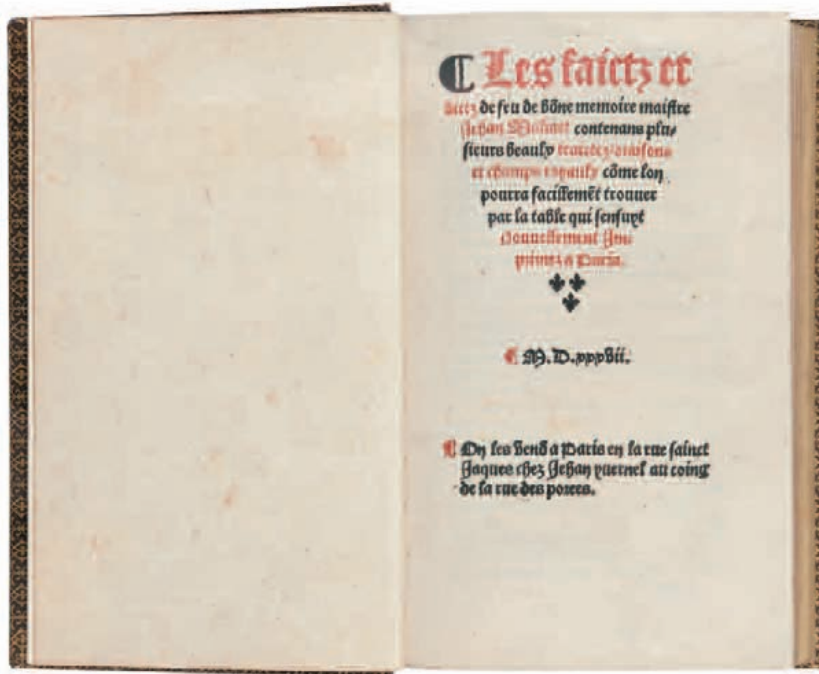 ¶ Les faictz et
dictz de feu de bõne memoire maistre
Jehan Molinet contenans plu-
sieurs beaulx traictez oraisons
et champs royaulx cõme lon
pourra facillemẽt trouuer
par la table qui sensuyt
Nouuellement Im-
primez a Paris.
¶ M. D. xxxvii.
¶ On les vend a Paris en la rue sainct
Jaques chez Jehan yuernel au coing
de la rue des porees.